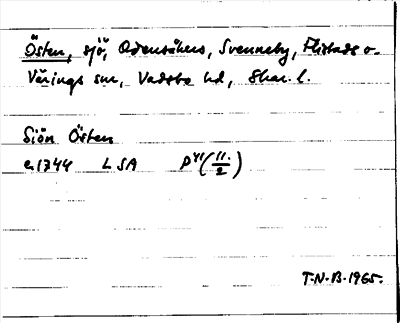 Östen, sjö, Odensåkers, Svenneby, Flistads o.
Värings snr, Vadsbo hd, Skar. l.
Siön Östen
c. 1744 LSA P41 (11./2)
T.N.B. 1965.